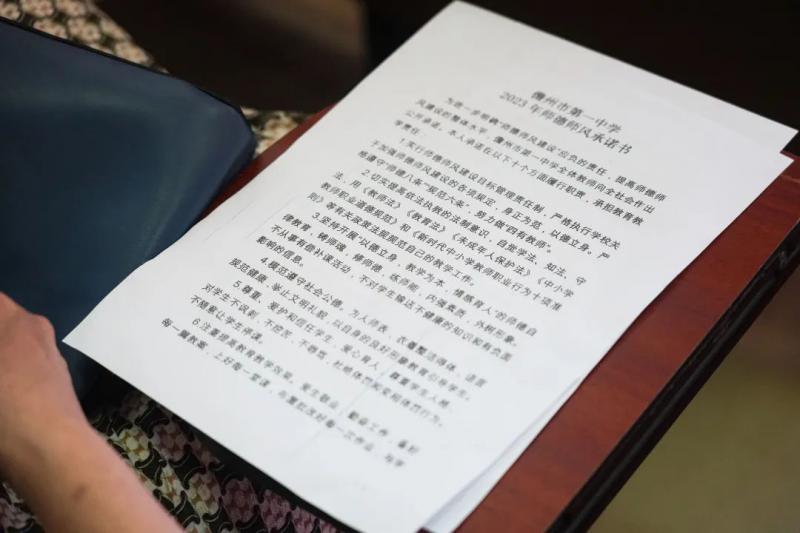 儋州市第一中学
2023年师德师风承诺书
为进一步明确“师德师风建设”应负的责任，提高师德师
风建设的整体水平，儋州市第一中学全体教师向全社会作出
公开承诺。本人承诺在以下十个方面履行职责，承担教育教
学责任：
1.实行师德师风建设目标管理责任制，严格执行学校关
于加强师德师风建设的各项规定，身正为范，以德立身，严
格遵守“师德八条”“规范六条”，努力做“四有教师”。
2.切实提高依法执教的法制意识，自觉学法、知法、守
法，用《教师法》《教育法》《未成年人保护法》《中小学
教师职业道德规范》和《新时代中小学教师职业行为十项准
则》等有关政策法规规范自己的教学工作。
3.坚持开展“以德立身，教学为本，情感育人”的师德自
律教育，铸师魂，修师德，练师能，内强素质，外树形象。
不从事有偿补课活动，不对学生输送不健康的知识和有负面
影响的信息。
4.模范遵守社会公德。为人师表，衣着整洁得体，语言
规范健康，举止文明礼貌，以自身的良好形象教育引导学生。
5.尊重、爱护和信任学生，爱心育人，尊重学生人格，
对学生不讽刺、不挖苦、不辱骂，杜绝体罚和变相体罚行为。
不随意让学生停课。
6.注重提高教育教学效果。爱生敬业，勤奋工作，备好
每一篇教案，上好每一堂课，布置批改好每一次作业，